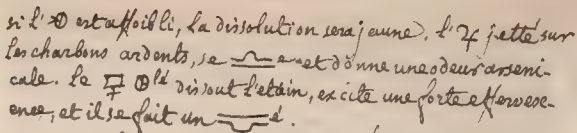 si l' est affoibli, la dissolution sera jaune. l'♃ jetté sur
les charbons ardents, se ♎e et donne une odeur arseni-
cale. le lé dissout l'etain, excite une forte efferves-
cence, et il se fait un é.